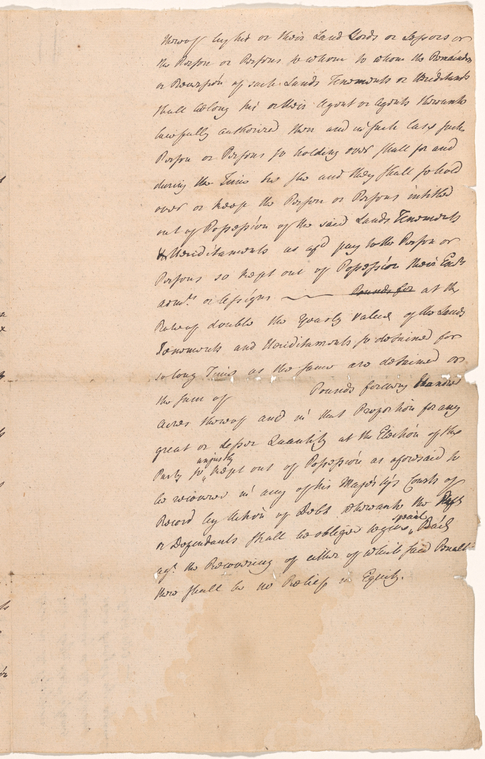 thereof by his or their Land Lords or Lessors or
the Person or Persons to whom to whom the Remainder
or Reversion of such Lands Tenements or Hereditaments
shall belong his or their Agent or Agents thereunto
lawfully authorized then and in such Case such
Person or Persons so holding over shall for and
during the Time he she and they shall so hold
over or keep the Person or Persons intitled
out of Possession of the said Lands Tenements
& Hereditaments as afd pay to the Person or
Persons so kept out of Possession their Exrs
admrs or Assigns Pounds for at the
Rate of double the Yearly Value of the Lands
Tenements and Hereditaments so detained for
so long Time as the same are detained or
the sum of Pounds for every Hundred
Acres thereof and in that Proportion for any
great or lesser Quantity at the Election of the
unjustly
Party so kept out of Possession as aforesaid to
be recovered in any of his Majesty's Courts of
Record by Action of Debt whereunto the
special
or Defendants shall be obliged to give Bail
agt the Recovering of either of which said Penalt
there shall be no Relief in Equity.